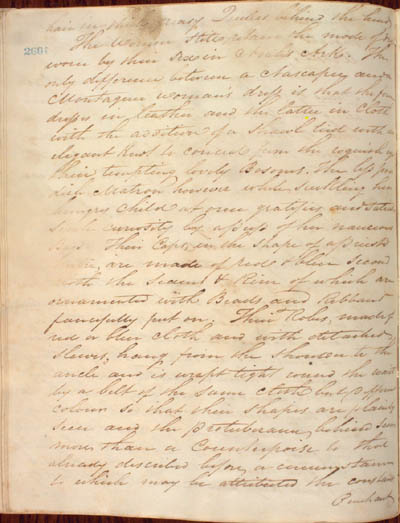 hair in greasy behind the head
The Women still retain the mode of dress
268
worn by their Sex in Noah's Ark. The
only difference between a Nascapee and a
Montagnee woman's dress is that the one
dresses in leather and the latter in cloth
with the addition of a Shawl tied with a
elegant Knot to conceal from the
their tempting lovely Bosoms. The less
Matron however while Suckling her
hungry Child at once gratifies and
curiosity by a of her nauseous
Their Caps, in the Shape of a
are made of red & blue Second
cloth the Seams & Rim of which are
ornamented with Beads and Ribbons
fancifully put on. Their Robes, made of
red or blue Cloth and with detached
Sleeves, hang from the Shoulder to the
ancle and is wrapt tight round the waist
by a belt of the same cloth but different
colour So that their Shapes are plainly
seen and the protuberance behind
more than a Counterpoise to that
already described before, a circumstance
to which may be attributed the constant
Penchant